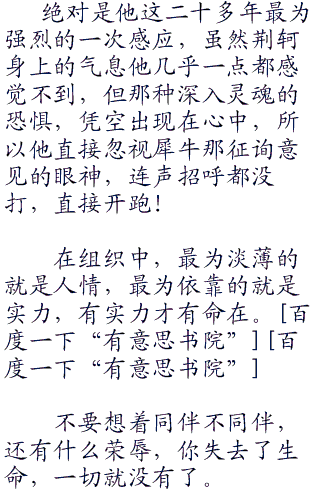 绝对是他这二十多年最为
强烈的一次感应，虽然荆轲
身上的气息他几乎一点都感
觉不到，但那种深入灵魂的
恐惧，凭空出现在心中，所
以他直接忽视犀牛那征询意
见的眼神，连声招呼都没
打，直接开跑！
在组织中，最为淡薄的
就是人情，最为依靠的就是
实力，有实力才有命在。[百
度一下“有意思书院”][百
度一下“有意思书院”]
不要想着同伴不同伴，
还有什么荣辱，你失去了生
命，一切就没有了。